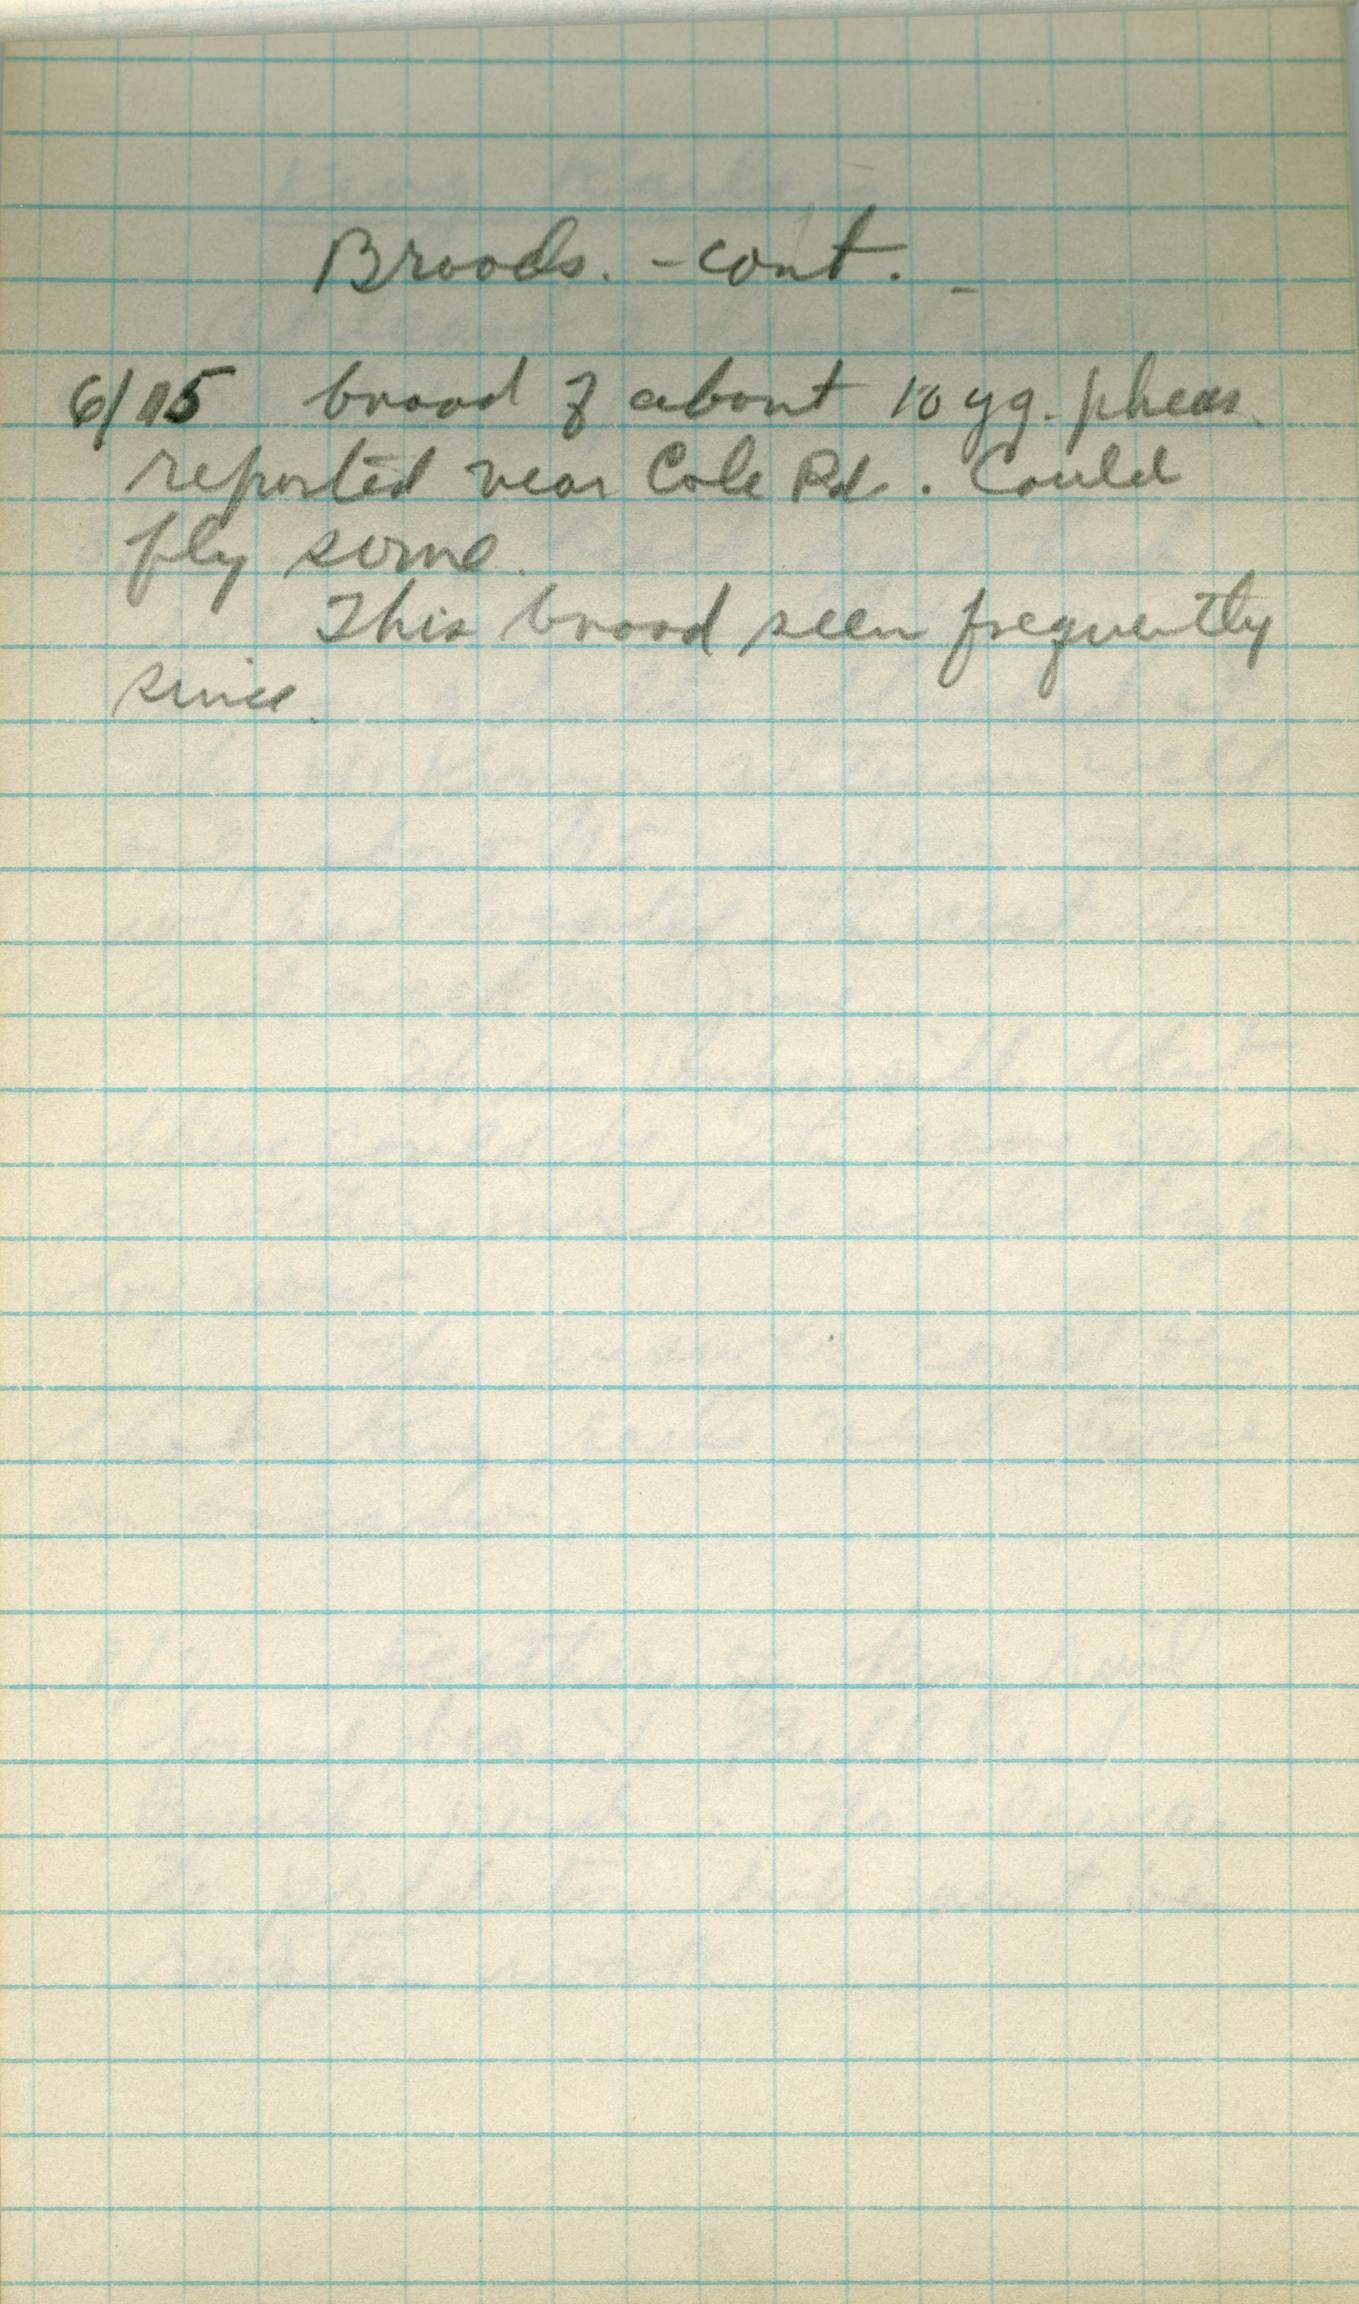 Broods. - cont. -
6/15 brood of about 10 yg. pheas.
reported near Cole Rd. Could
fly some.
This brood seen frequently
since.